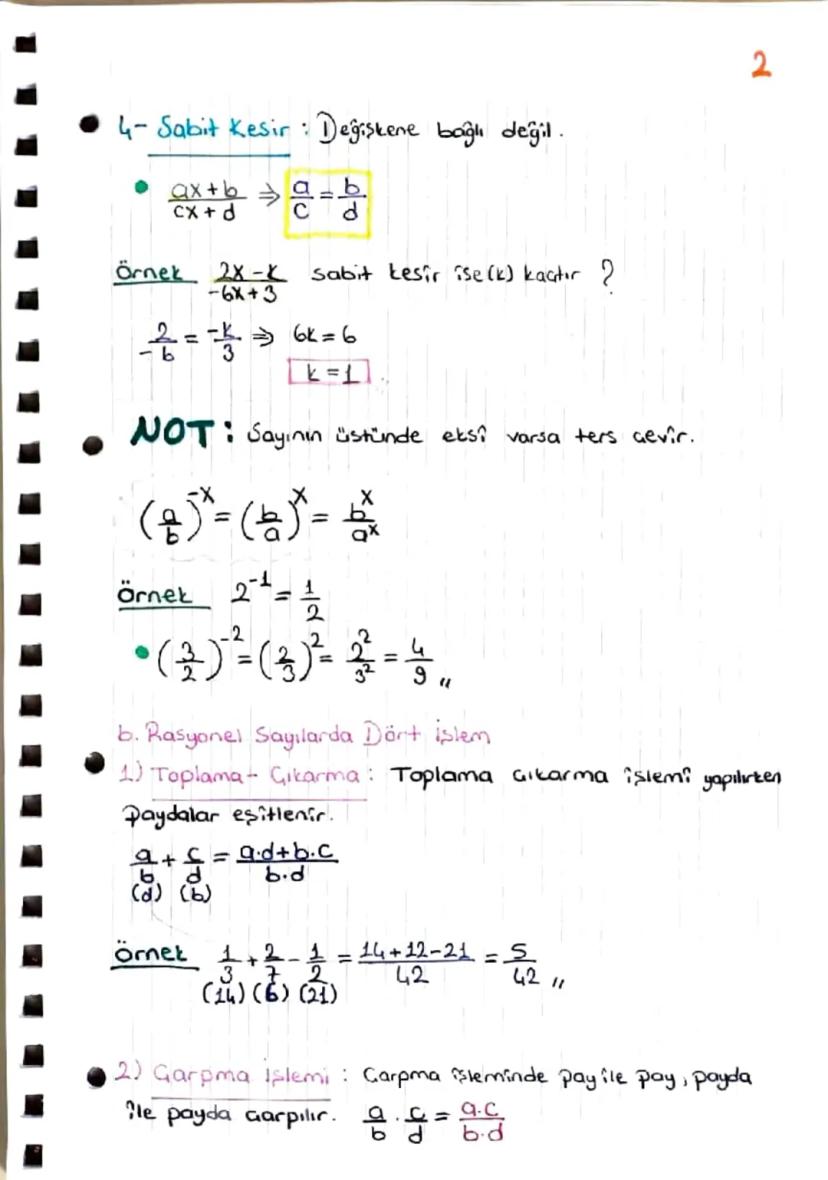 2
4- Sabit Kesir : Değişkene bağlı değil.
• ax+b / cx+d ⇒ a/c = b/d
Örnek 2x-k / -6x+3 sabit kesir ise (k) kaçtır ?
2/-6 = -k/3 ⇒ 6k=6
k=1
NOT: Sayının üstünde eksi varsa ters çevir.
(a/b)^-x = (b/a)^x = b^x/a^x
Örnek 2^-1 = 1/2
• (3/2)^-2 = (2/3)^2 = 2^2/3^2 = 4/9 ,,
b. Rasyonel Sayılarda Dört işlem
1) Toplama - Çıkarma : Toplama çıkarma işlemi yapılırken
Paydalar eşitlenir.
a/b + c/d = a.d+b.c / b.d
(d) (b)
Örnek 1/3 + 2/7 - 1/2 = 14+12-21 / 42 = 5/42 ,,
(14) (6) (21)
2) Çarpma işlemi : Çarpma işleminde pay ile pay, payda
ile payda çarpılır. a/b . c/d = a.c/b.d